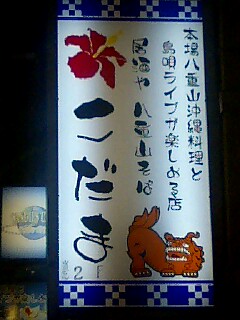 本場八重山沖縄料理と
島唄ライブが楽しめる店
居酒や 八重山そば
こだま
2F